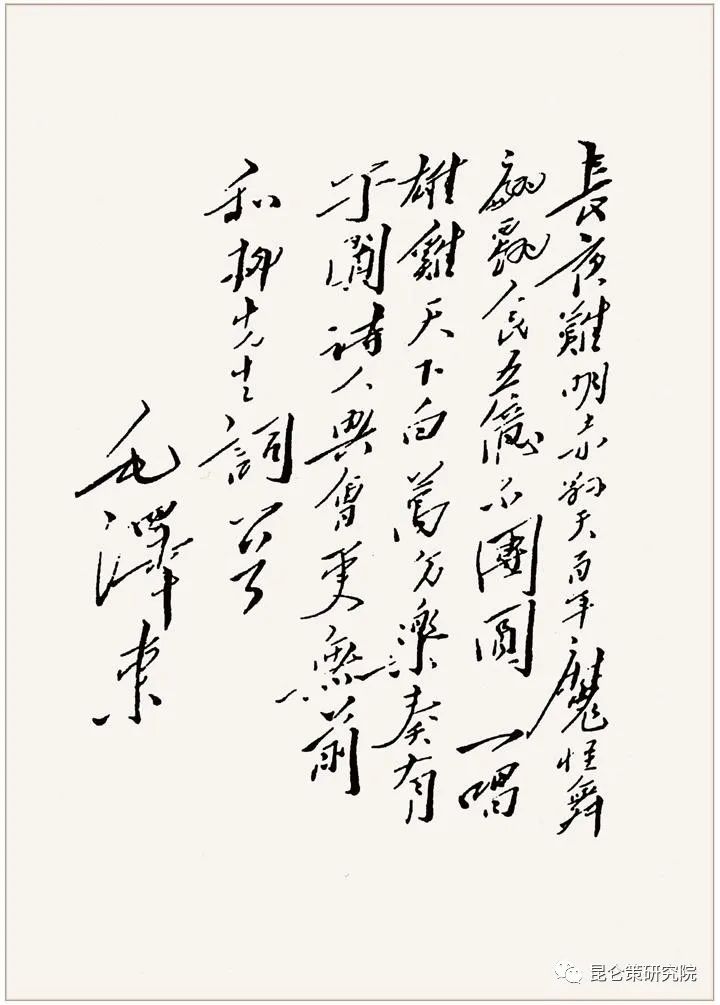 長夜難明赤縣天百年魔怪舞
翩躚人民五億不團圓 一唱
雄雞天下白萬方樂奏有
于闐詩人興會更無前
和柳先生詞
毛澤東
昆仑策研究院